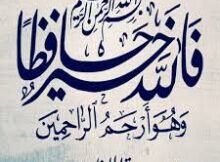 بسم الله الرحمن الرحيم
فَاللَّهُ خَيْرٌ حَافِظًا
وَهُوَ أَرْحَمُ الرَّاحِمِينَ